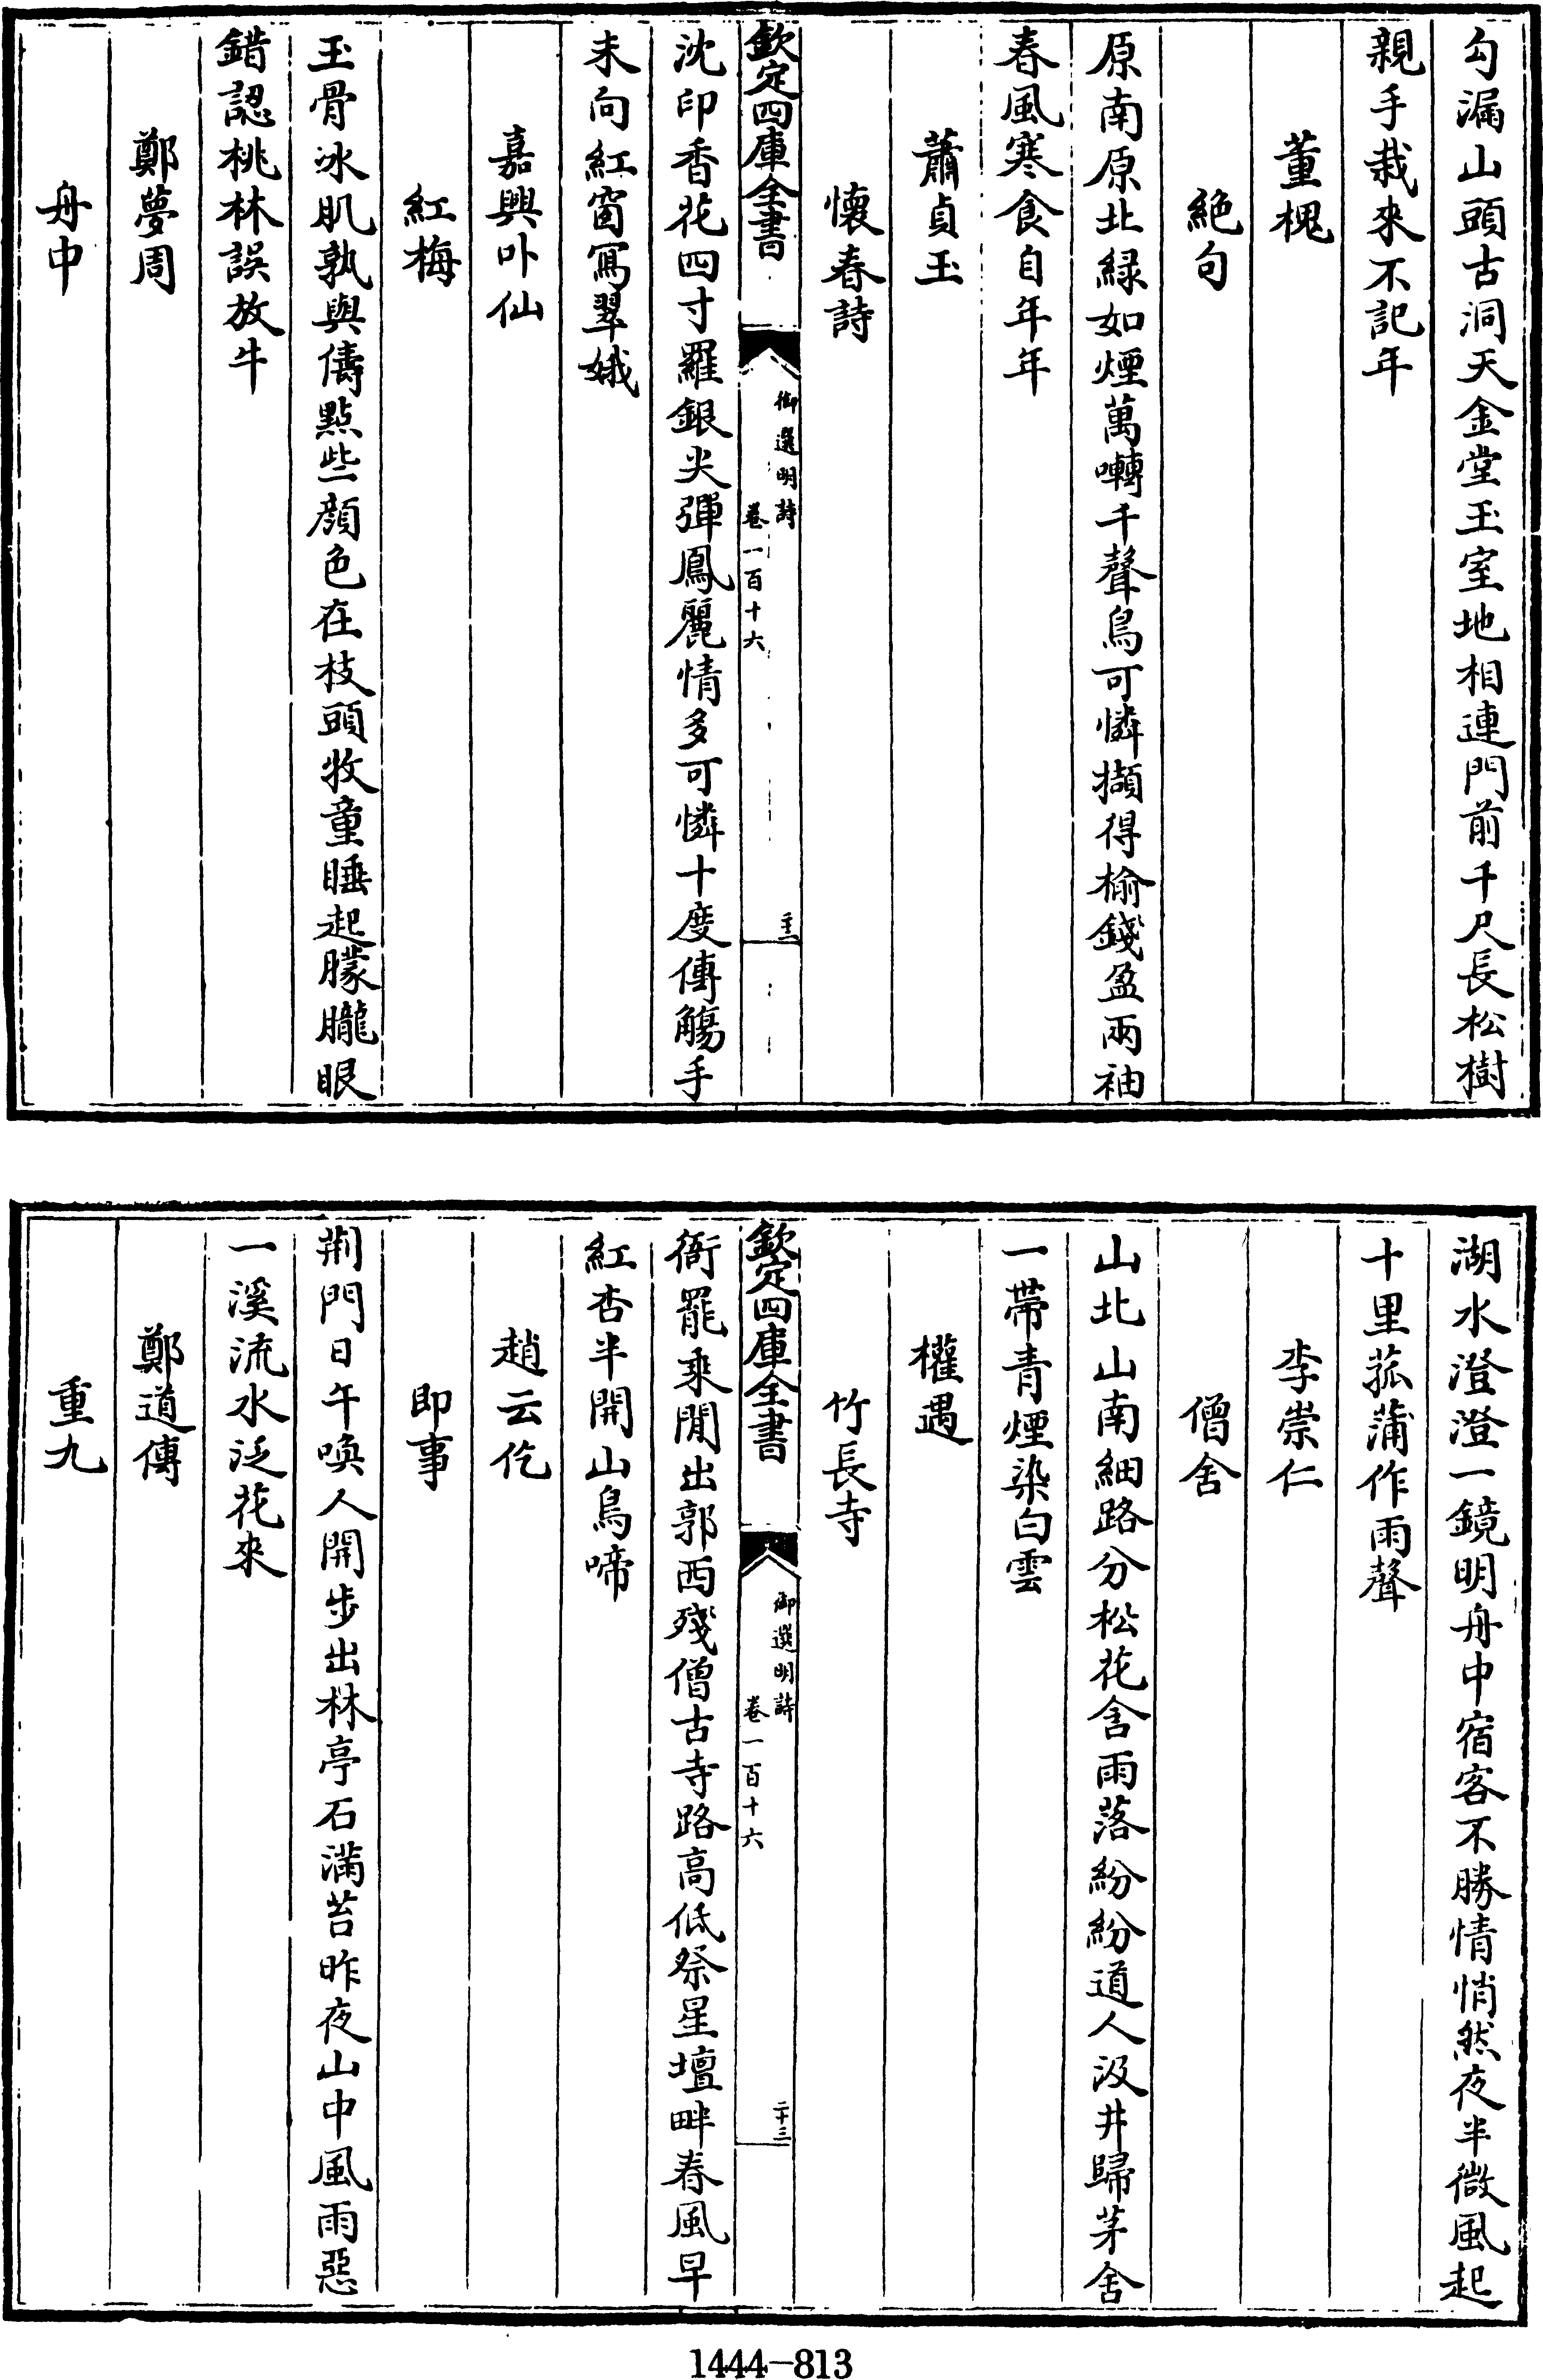 勾漏山頭古洞天金堂玉室地相連門前千尺長松樹
親手栽來不記年
董槐
絕句
原南原北緑如煙萬囀千聲鳥可憐擷得榆錢盈兩袖
春風寒食自年年
蕭貞玉
懷春詩
欽定四庫全書
御選明詩
卷一百十六
主
沈印香花四寸羅銀尖彈鳳麗情多可憐十度傳觴手
未向紅窗寫翠娥
嘉興卟仙
紅梅
玉骨冰肌孰與儔點些顔色在枝頭牧童睡起朦朧眼
錯認桃林誤放牛
鄭夢周
舟中
湖水澄澄一鏡明舟中宿客不勝情悄然夜半微風起
十里菰蒲作雨聲
李崇仁
僧舍
山北山南細路分松花含雨落紛紛道人汲井歸茅舍
一帶青煙染白雲
權遇
竹長寺
欽定四庫全書
御選明詩
卷一百十六
二十三
衙罷乘閒出郭西殘僧古寺路高低祭星壇畔春風早
紅杏半開山鳥啼
趙云仡
即事
荆門日午喚人開步出林亭石滿苔昨夜山中風雨惡
一溪流水泛花來
鄭道傳
重九
1444-813